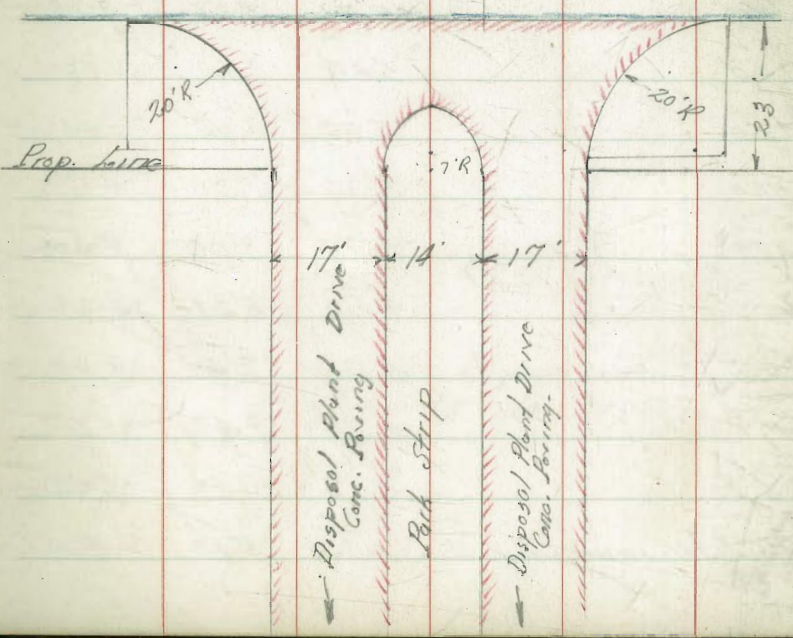 20'R
20'R
23'
Prop. Line
7'R
17'
14'
17'
Disposal Plant Drive
Conc. Paving
Park Strip
Disposal Plant Drive
Conc. Paving.